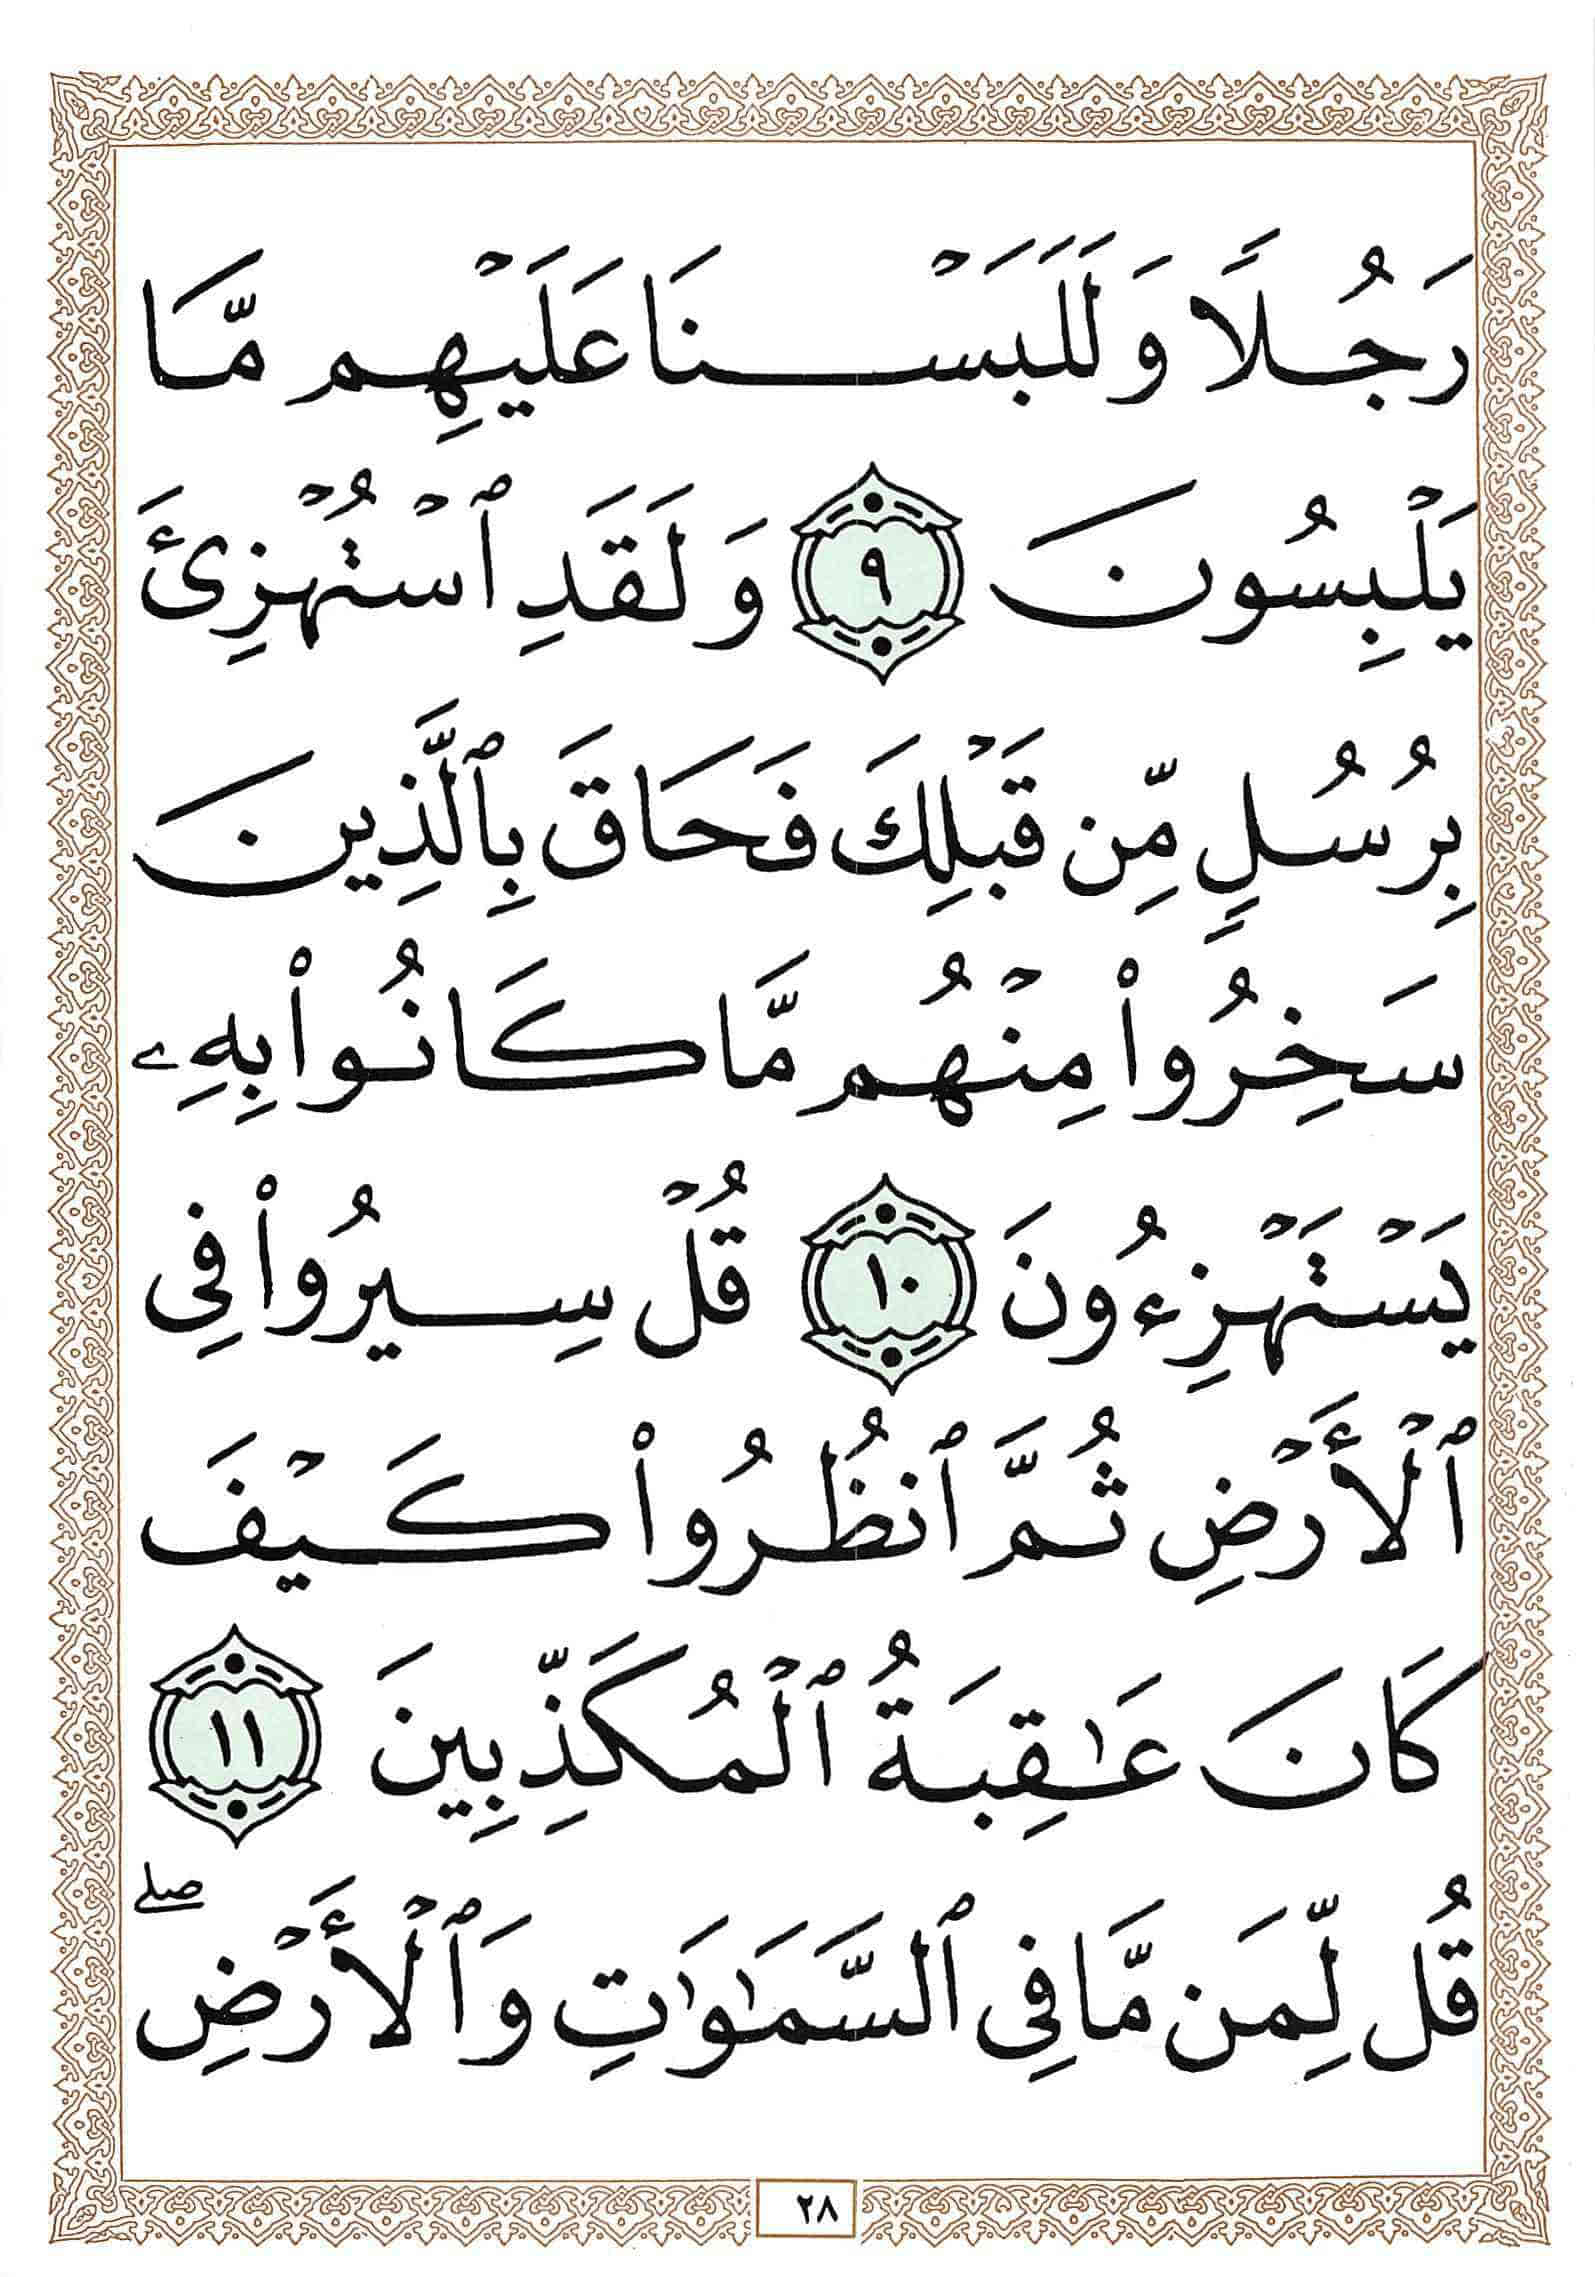 رَجُلًا وَلَلَبَسْنَا عَلَيْهِم مَّا
يَلْبِسُونَ ٩ وَلَقَدِ ٱسْتُهْزِئَ
بِرُسُلٍ مِّن قَبْلِكَ فَحَاقَ بِٱلَّذِينَ
سَخِرُوا۟ مِنْهُم مَّا كَانُوا۟ بِهِۦ
يَسْتَهْزِءُونَ ١٠ قُلْ سِيرُوا۟ فِى
ٱلْأَرْضِ ثُمَّ ٱنظُرُوا۟ كَيْفَ
كَانَ عَٰقِبَةُ ٱلْمُكَذِّبِينَ ١١
قُل لِّمَن مَّا فِى ٱلسَّمَٰوَٰتِ وَٱلْأَرْضِۖ
٢٨